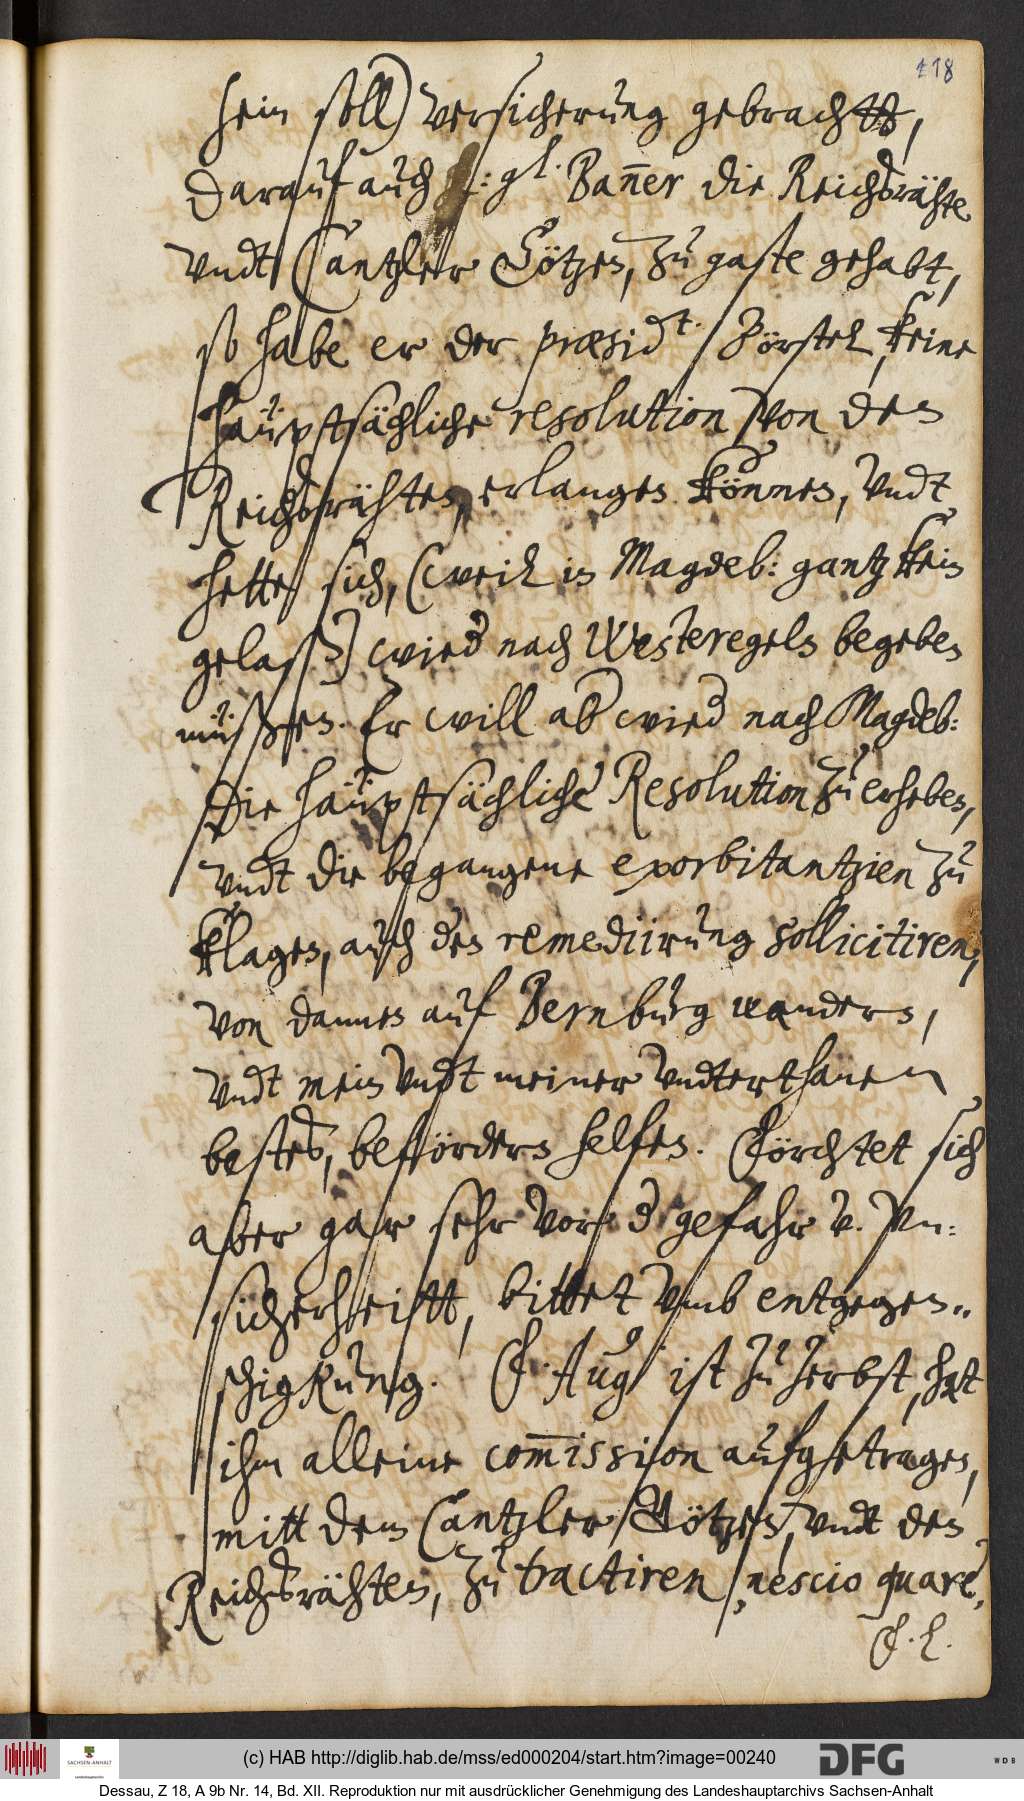 118
sein soll) versicherung gebracht,
darauf auch : gl. Bañer die Reichsrähte
undt Cantzler Götzen, zu gaste gehabt,
so habe er der præsidt. Börstel, keine
hauptsächliche resolution von den
Reichsrähten, erlangen können, undt
hette sich, (weil in Magdeb: gantz kein
gelaß) wied nach Westeregeln begeben
müßen. Er will ab wied nach Magdeb:
die hauptsächliche Resolution zu erheben,
undt die begangene exorbitantzien zu
klagen, auch den remediirung sollicitiren,
von dannen auf Bernburg wandern,
undt mein undt meiner undterthanen
bestes, befördern helfen. Förchtet sich
aber gar sehr vor d gefahr v. vn:
sicherheitt, bittet umb entgegen..
schigkung. F. Aug ist zu Zerbst, hat
ihm alleine com̄ission aufgetragen,
mitt dem Cantzler Götzen, undt den
Reichsrähten, zu tractiren, nescio quare,
F. L.
(c) HAB http://diglib.hab.de/mss/ed000204/start.htm?image=00240
SACHSEN-ANHALT
DFG
WDB
Dessau, Z 18, A 9b Nr. 14, Bd. XII. Reproduktion nur mit ausdrücklicher Genehmigung des Landeshauptarchivs Sachsen-Anhalt